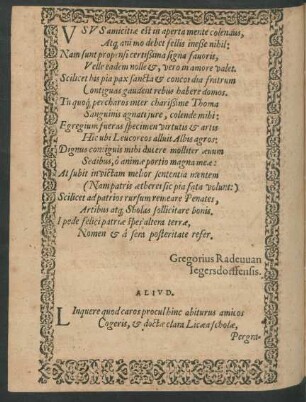 VSVS amicitiæ est in aperta mente colendus,
Atq; animo debet fellis inesse nihil:
Nam sunt propensi certissima signa favoris,
Velle eadem nolle &, vero in amore valet.
Scilicet has pia pax sancta & concordia fratrum
Contiguas gaudent rebus habere domos.
Tu quoq; perchares inter charissime Thoma
Sanguinis agnati jure, colende mihi:
Egregium fueras specimen virtutis & artis
Hic ubi Leucoreos alluit Albis agros:
Dignus contiguis mihi ducere molliter ævum
Sedibus, ô animæ portio magna meæ:
At subit invictam melior sententia mentem
(Nam patris æthereï sic pia fata volunt:)
Scilicet ad patrios rursum remeare Penates,
Artibus atq; Scholas sollicitare bonis.
I pede felici patriæ spes altera terræ,
Nomen & à sera posteritate refer.
Gregorius Radeuuan
Iegersdorffensis.
ALIVD.
LInquere quod caros procul hinc abiturus amicos
Cogeris, & doctæ clara Licæa scholæ,
Pergra-